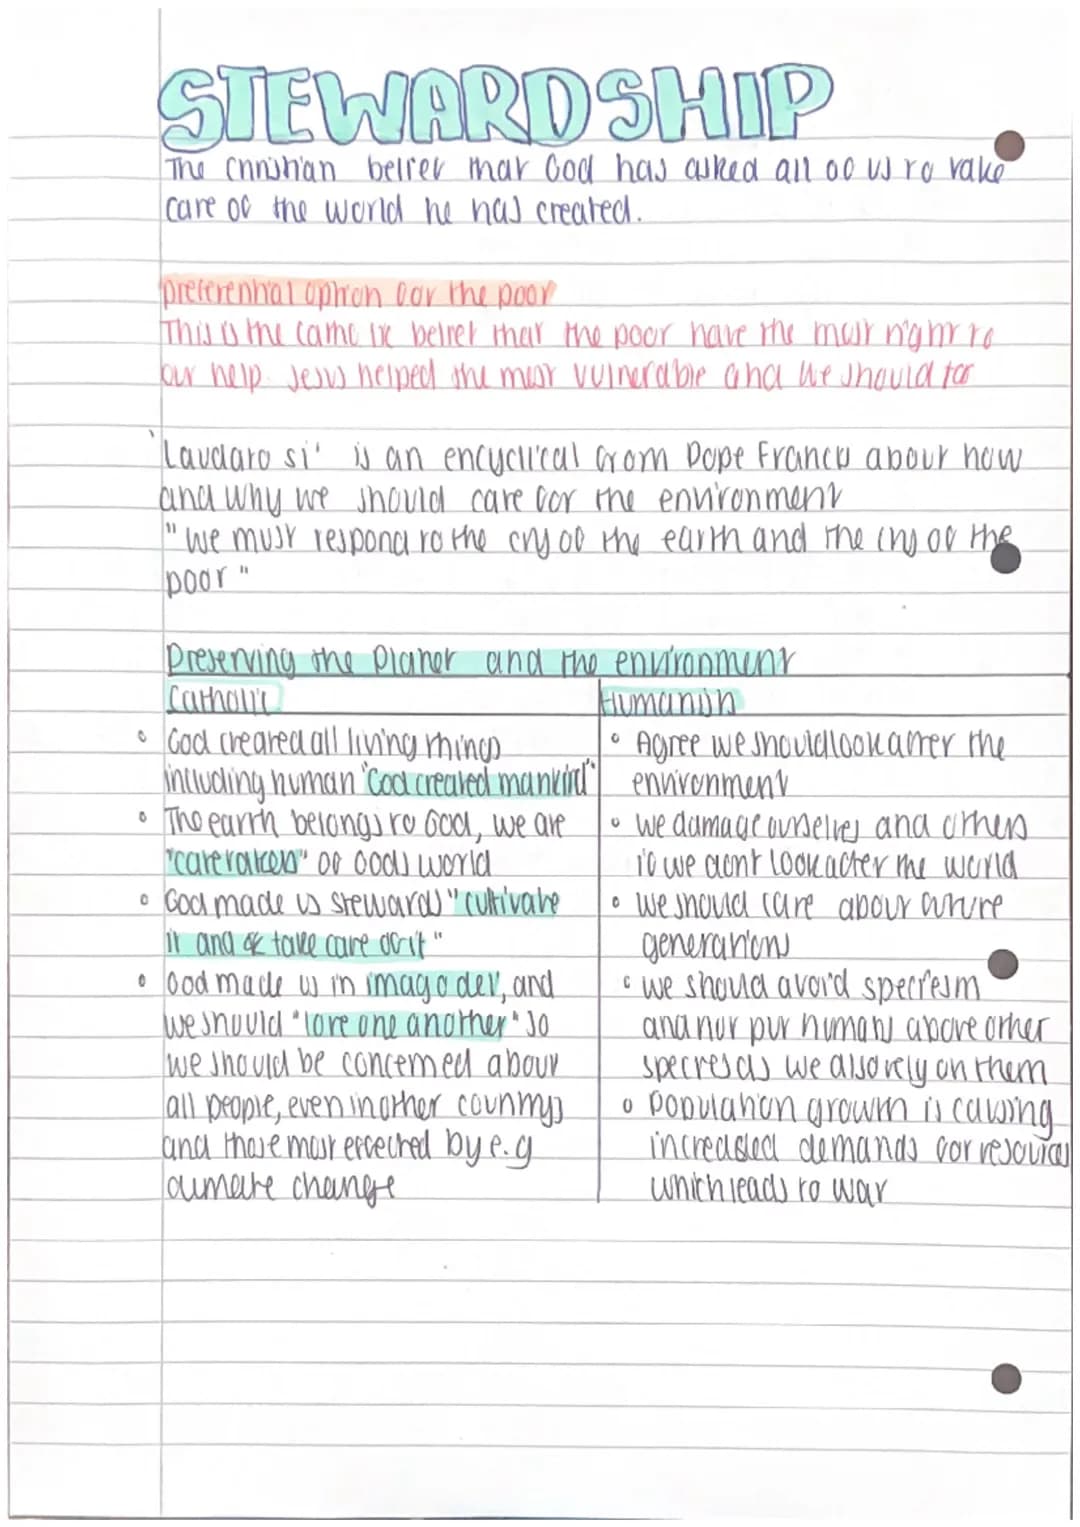 STEWARDSHIP
The Christian belief that God has asked all of us to take
care of the world he has created.
preferential option for the poor
This is the catholic belief that the poor have the most right to
our help. Jesus helped the most vulnerable and we should too
'Laudato si' is an encyclical from Pope Francis about how
and why we should care for the environment
"we must respond to the cry of the earth and the cry of the
poor"
Preserving the Planet and the environment
Catholic
God created all living things
including human "God created mankind"
The earth belongs to God, we are
"caretakers" of Gods world
God made us stewards "cultivate
it and take care of it"
God made us in imago dei, and
we should "love one another" so
we should be concerned about
all people, even in other countrys
and those most effected by e.g
climate change
Humanists
Agree we should look after the
environment
we damage ourselves and others
if we dont look after the world
we should care about future
generations
we should avoid speciesm
and not put humans above other
species as we also rely on them
Population growth is causing
increased demands for resources
which leads to war